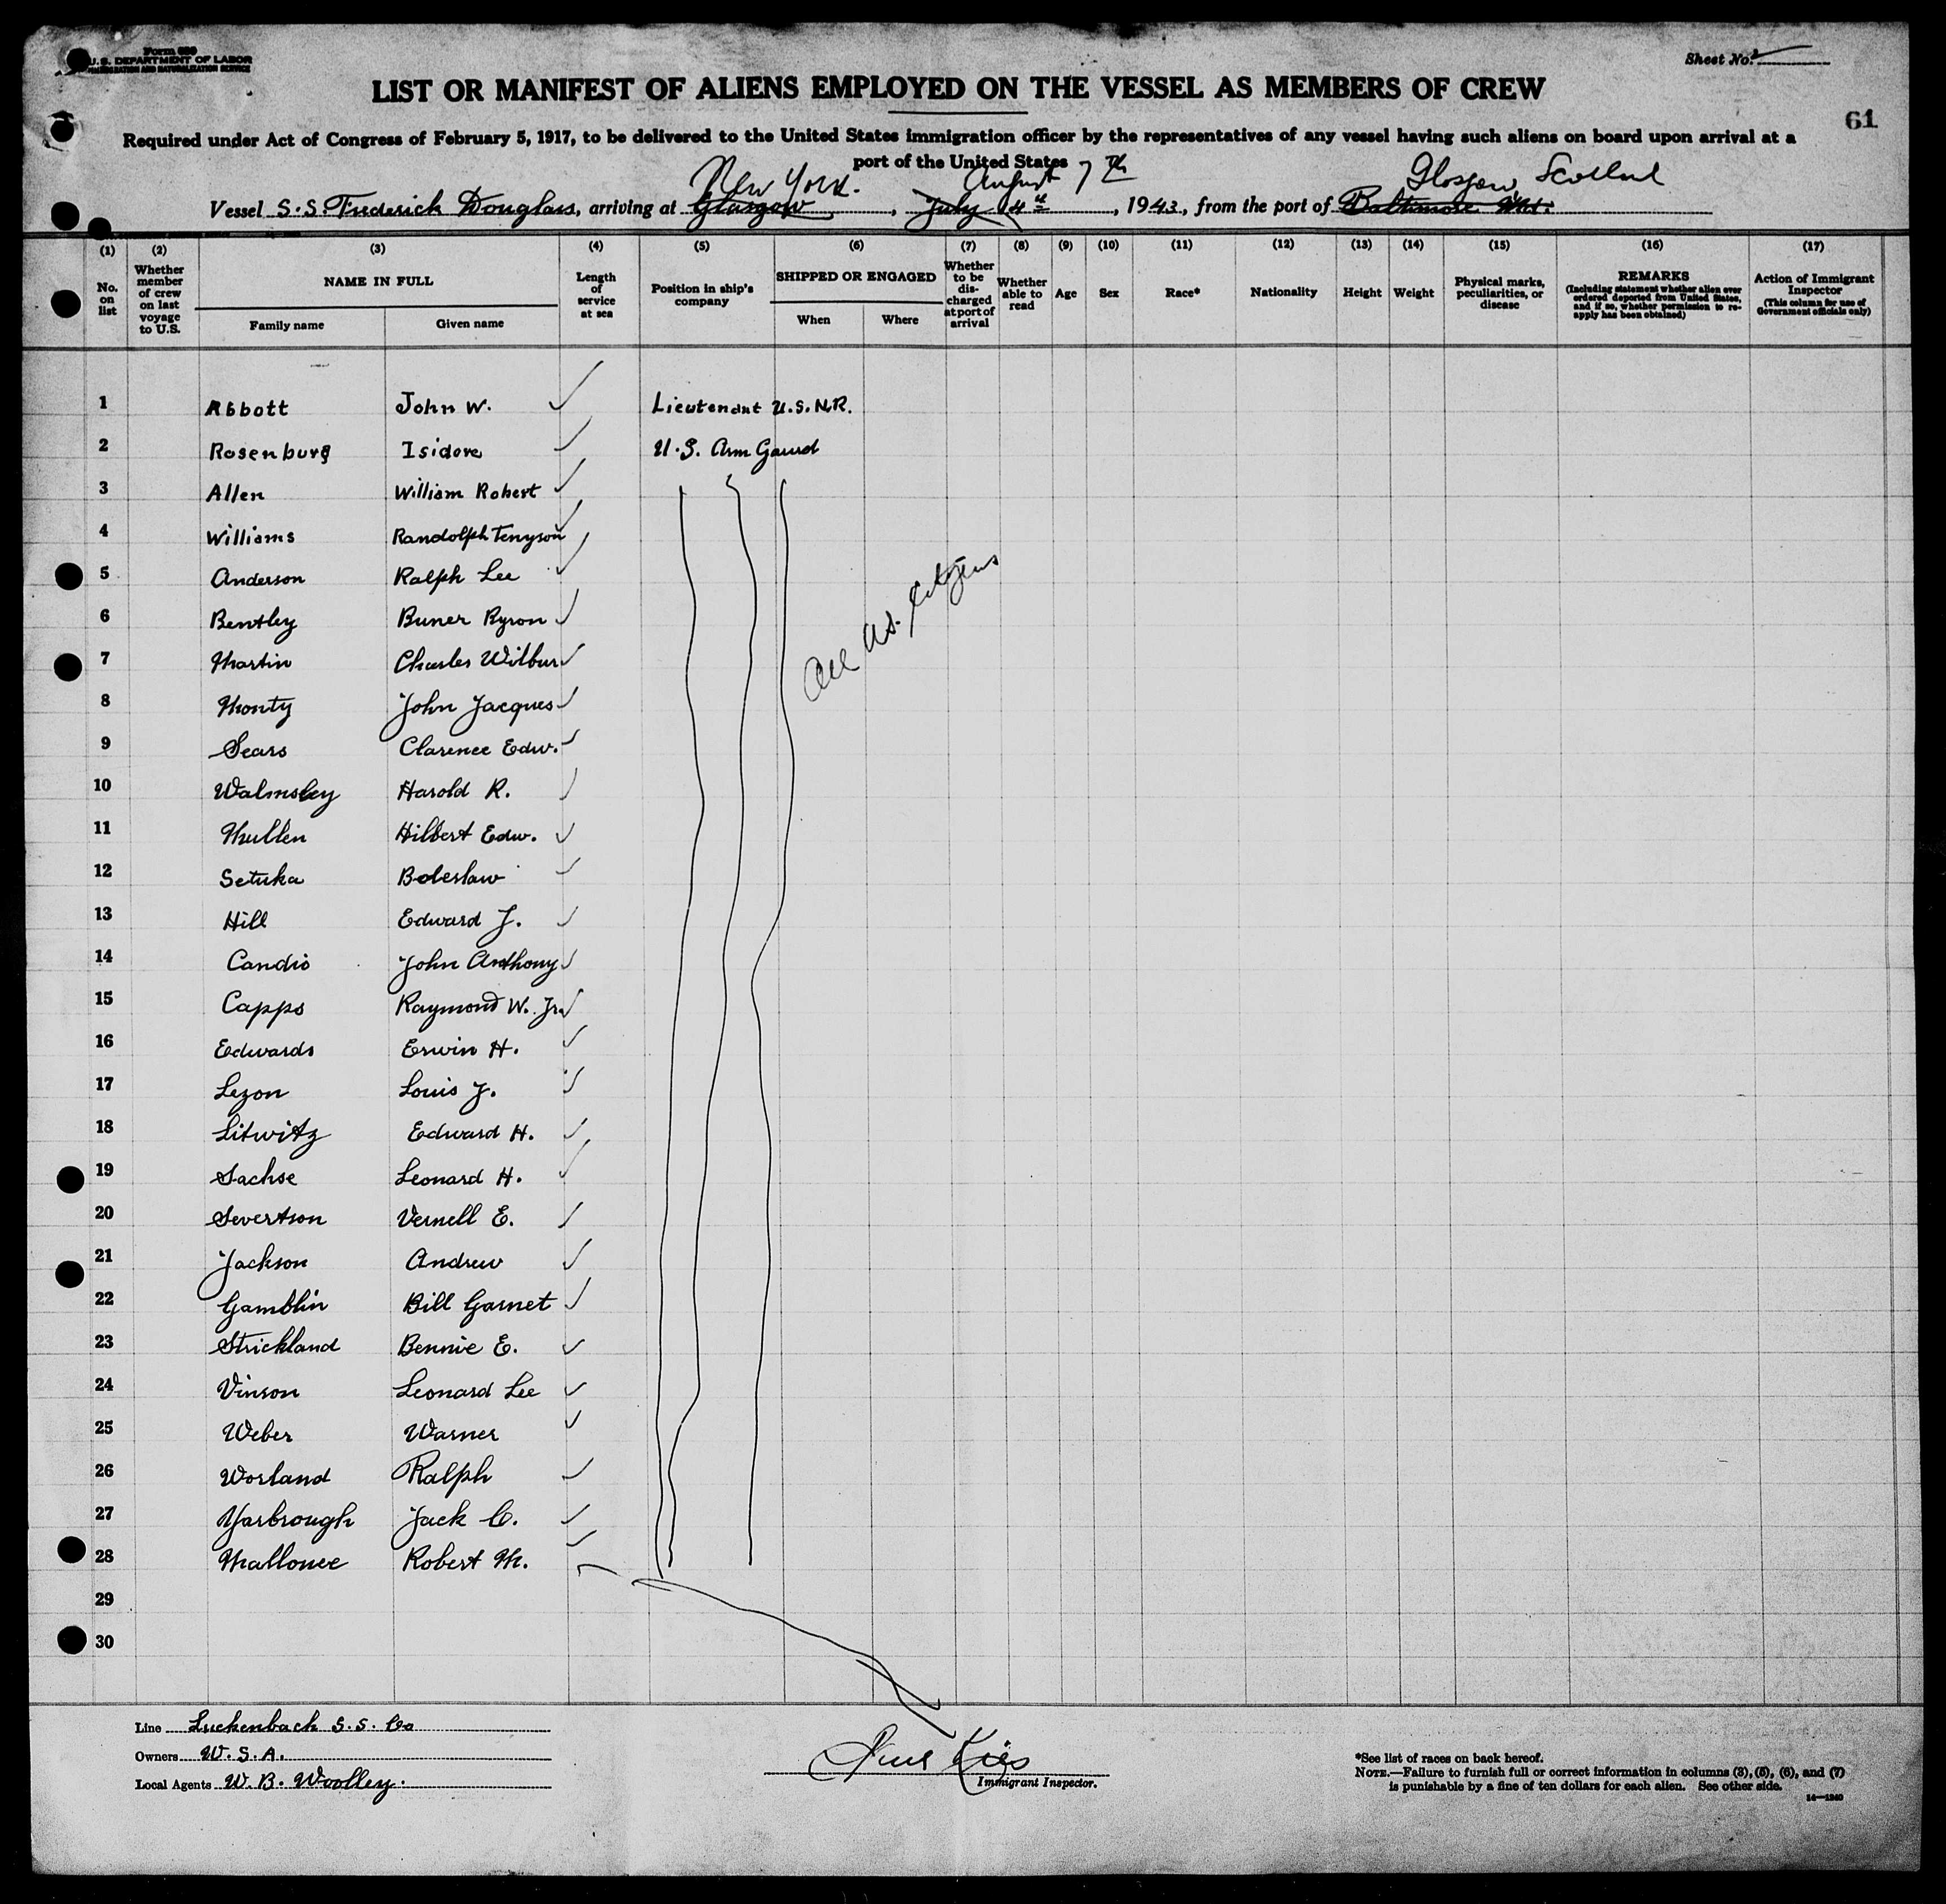 Form 680
U.S. DEPARTMENT OF LABOR
IMMIGRATION AND NATURALIZATION SERVICE
Sheet No.
LIST OR MANIFEST OF ALIENS EMPLOYED ON THE VESSEL AS MEMBERS OF CREW
61
Required under Act of Congress of February 5, 1917, to be delivered to the United States immigration officer by the representatives of any vessel having such aliens on board upon arrival at a
port of the United States
New York. August 7th Glasgow, Scotland
Vessel S.S. Frederick Douglass, arriving at Glasgow, July 4th, 1943, from the port of Baltimore Md.
(1) (2) (3) (4) (5) (6) (7) (8) (9) (10) (11) (12) (13) (14) (15) (16) (17)
No. on list
Whether member of crew on last voyage to U.S.
NAME IN FULL
Family name Given name
Length of service at sea
Position in ship's company
SHIPPED OR ENGAGED
When Where
Whether to be discharged at port of arrival
Whether able to read
Age
Sex
Race*
Nationality
Height
Weight
Physical marks, peculiarities, or disease
REMARKS
(Including statement whether alien ever ordered deported from United States, and if so, whether permission to reapply has been obtained)
Action of Immigrant Inspector
(This column for use of Government officials only)
1 Abbott John W. Lieutenant U.S.N.R.
2 Rosenburg Isidore U.S. Arm Gaurd
3 Allen William Robert
4 Williams Randolph Tenyson
5 Anderson Ralph Lee
All U.S. Citizens
6 Bentley Buner Byron
7 Martin Charles Wilbur
8 Monty John Jacques
9 Sears Clarence Edw.
10 Walmsley Harold R.
11 Mullen Hilbert Edw.
12 Setuka Boleslaw
13 Hill Edward J.
14 Candio John Anthony
15 Capps Raymond W. Jr.
16 Edwards Erwin H.
17 Lezon Louis J.
18 Litwitz Edward H.
19 Sachse Leonard H.
20 Severtson Vernell E.
21 Jackson Andrew
22 Gamblin Bill Garnet
23 Strickland Bennie E.
24 Vinson Leonard Lee
25 Weber Warner
26 Worland Ralph
27 Yarbrough Jack C.
28 Mallonee Robert M.
29
30
Line Luckenbach S.S. Co
Owners W.S.A.
Local Agents W.B. Woolley.
Immigrant Inspector.
*See list of races on back hereof.
NOTE.—Failure to furnish full or correct information in columns (3), (5), (6), and (7)
is punishable by a fine of ten dollars for each alien. See other side.
14—1240